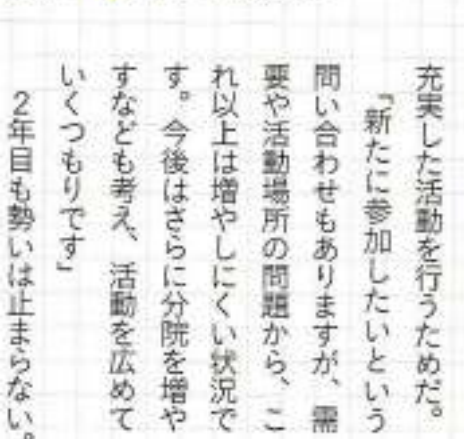 充実した活動を行うためだ。
「新たに参加したいという
問い合わせもありますが、需
要や活動場所の問題から、こ
れ以上は増やしにくい状況で
す。今後はさらに分院を増や
すなども考え、活動を広めて
いくつもりです」
2年目も勢いは止まらない。